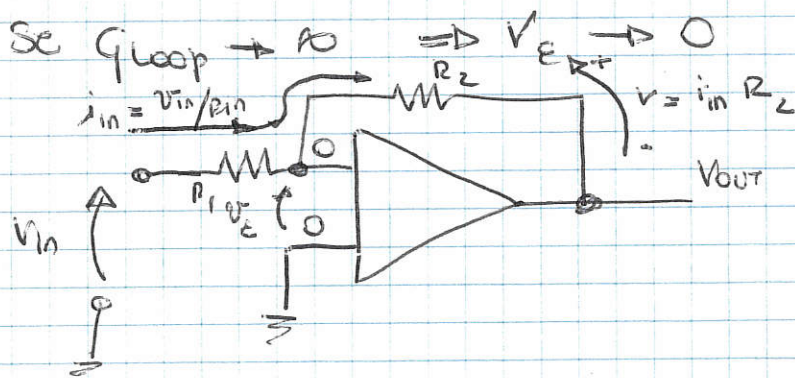 Se GLOOP → ∞ ⇒ Vε → 0
iin = vin/Rin
R2
+
v = iin R2
-
0
R1
vε
0
Vin
VOUT